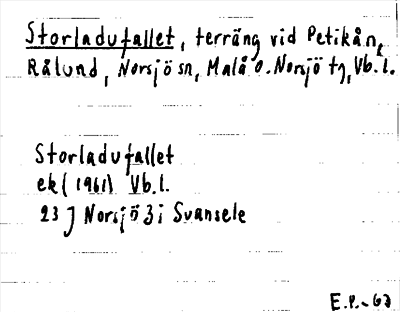 Storladufallet, terräng vid Petikån,
Rålund, Norsjö sn, Malå o. Norsjö tg, Vb. l.
Storladufallet
ek (1961) Vb. l.
23 J Norsjö 3 i Svansele
E.P. -67